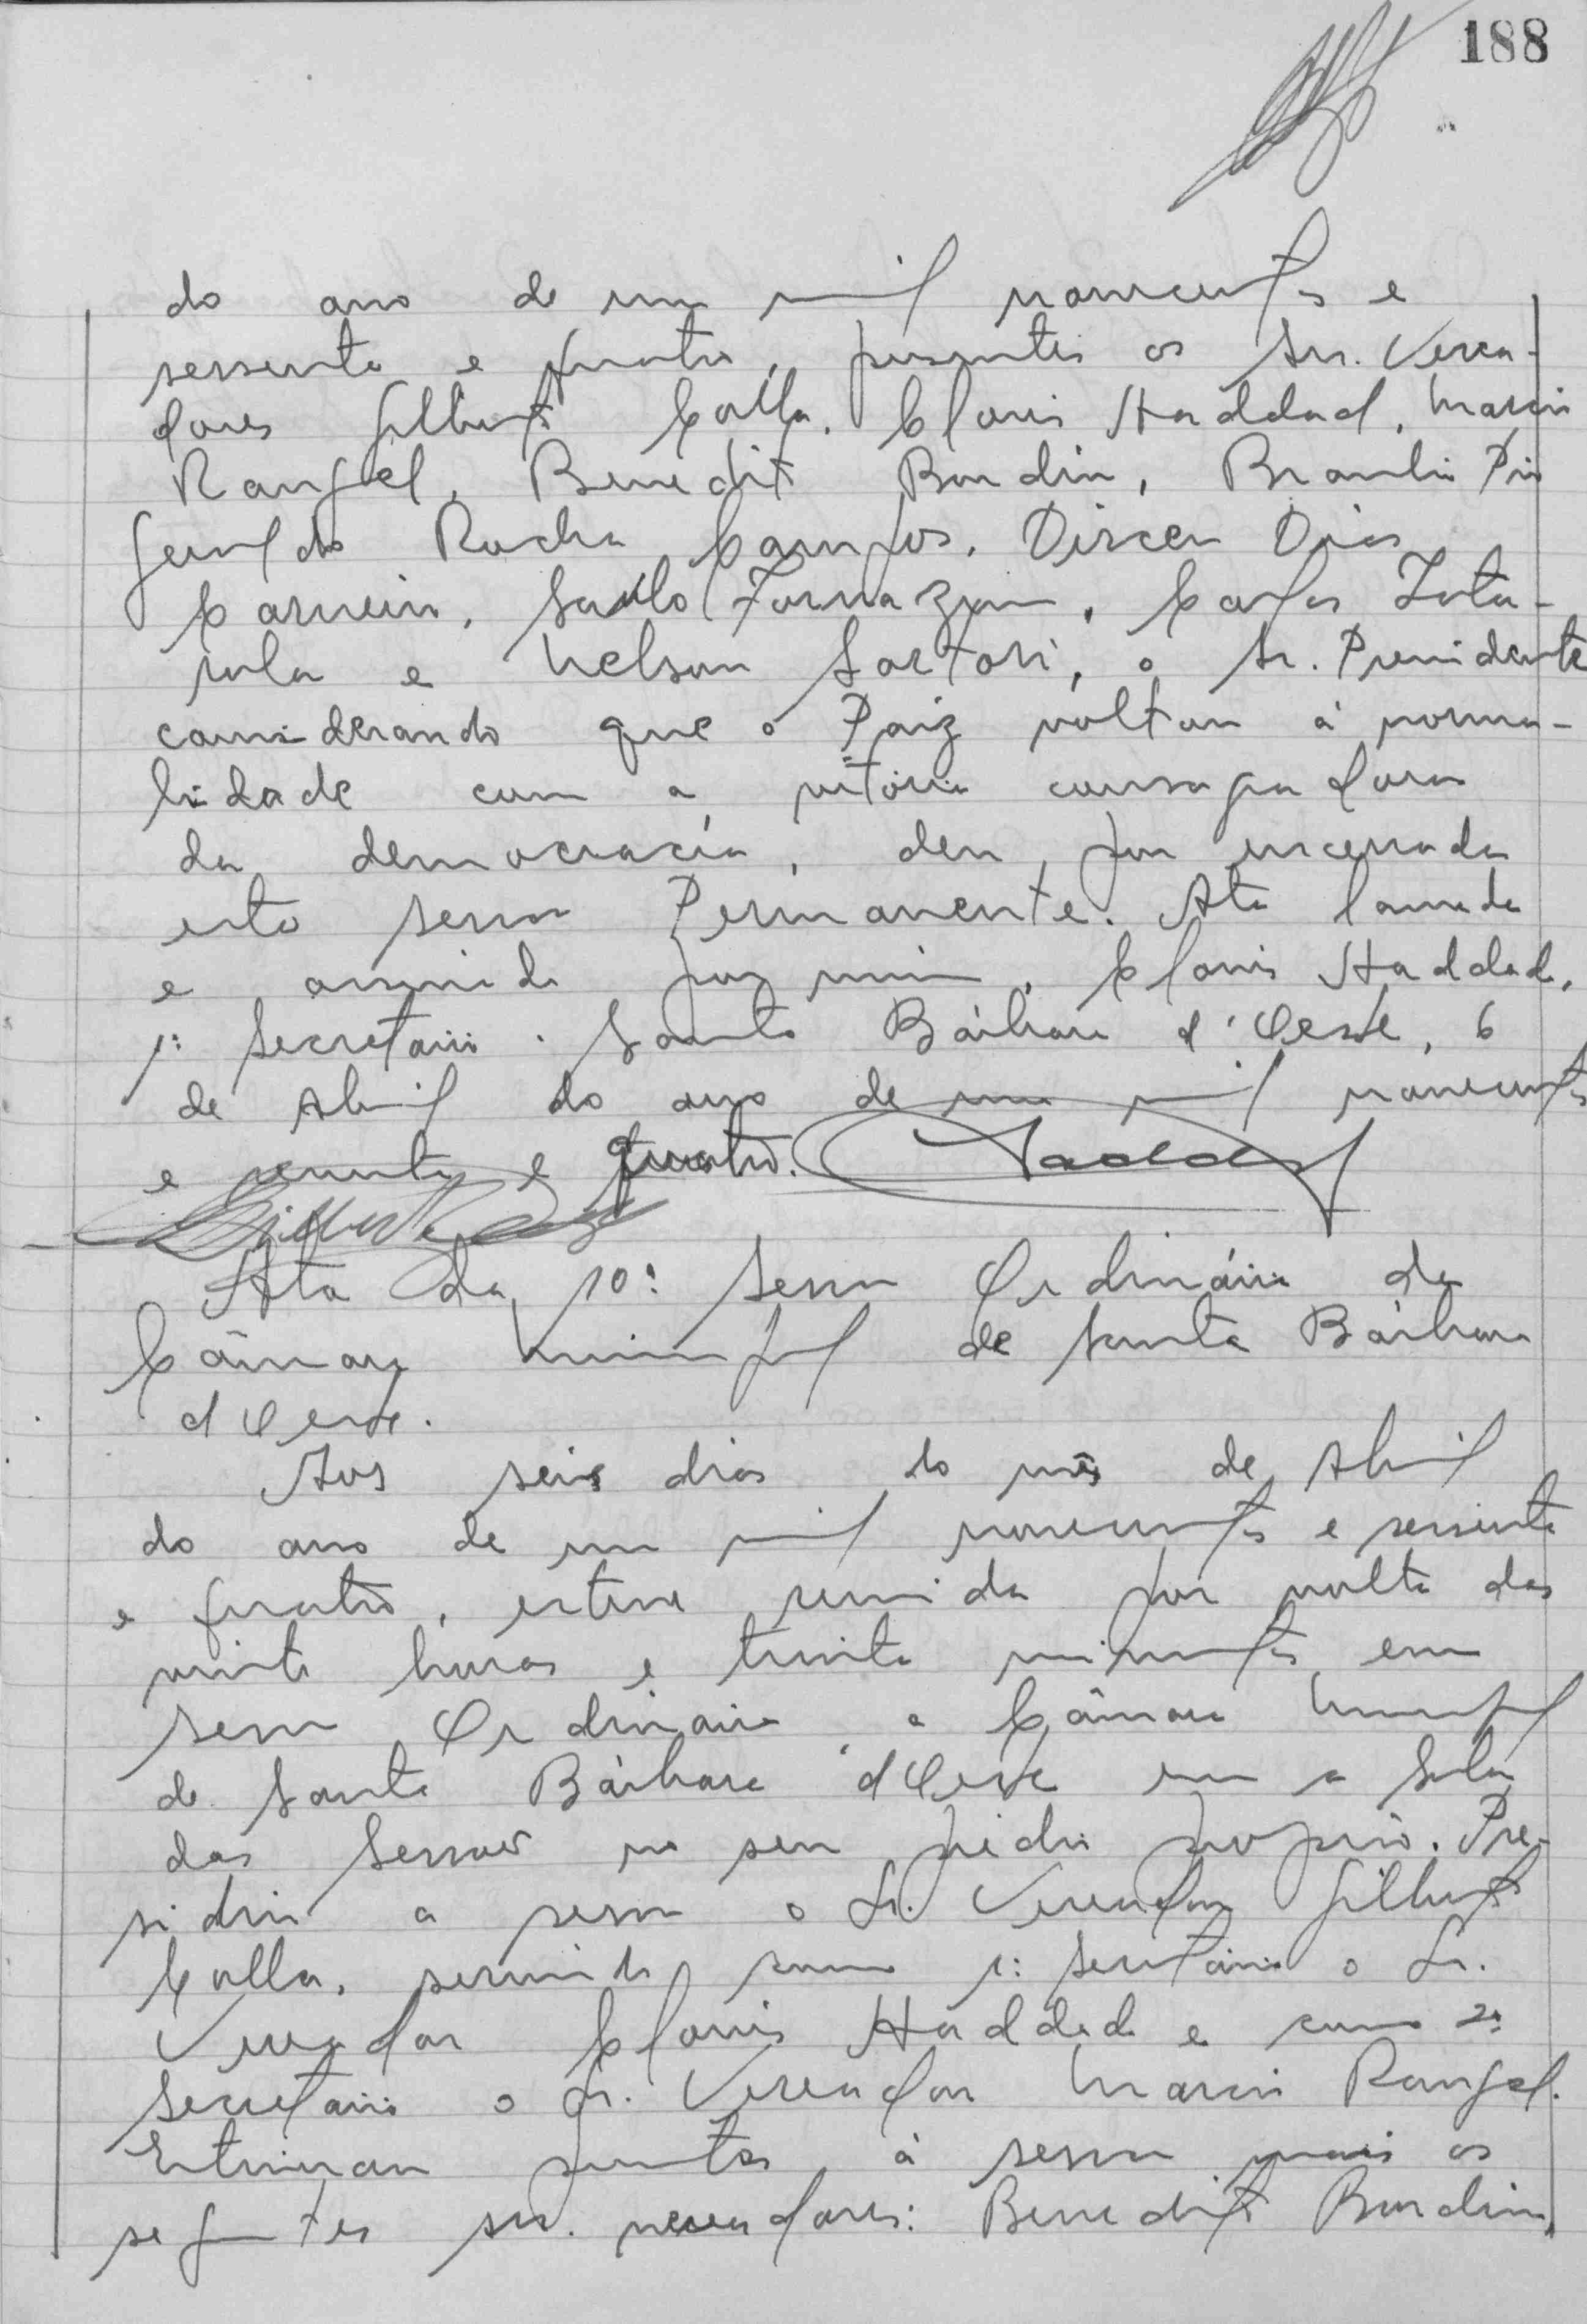 188
do ano de um mil novecentos e
sessenta e quatro, presentes os Srs. Verea-
dores Gilberto Calla, Clovis Haddad, Marcio
Rangel, Benedito Bordin, Braulio Pio
Geraldo Rocha Campos, Dirceu Dias
Carneiro, Saulo Fornazin, Carlos Lota-
rola e Nelson Sartori, o Sr. Presidente
considerando que o Paiz voltou à norma-
lidade com a vitória consagradora
da democracía, deu por encerrada
esta sessão Permanente. Ata lavrada
e assinada por mim, Clovis Haddad,
1º Secretario. Santa Bárbara d'Oeste, 6
de Abril do ano de um mil novecentos
e sessenta e quatro. Haddad
Ata da 10ª sessão Ordinária da
Câmara Municipal de Santa Bárbara
d'Oeste.
Aos seis dias do mês de Abril
do ano de um mil novecentos e sessenta
e quatro, esteve reunida por volta das
vinte horas e trinta minutos em
sessão Ordinária a Câmara Municipal
de Santa Bárbara d'Oeste em a Sala
das Sessões no seu prédio proprio. Pre-
sidiu a sessão o Sr. Vereador Gilberto
Calla, servindo como 1º Secretário o Sr.
Vereador Clovis Haddad e como 2º
Secretario o Sr. Vereador Marcio Rangel.
Estiveram presentes à sessão mais os
seguintes srs. vereadores: Benedito Bordin,